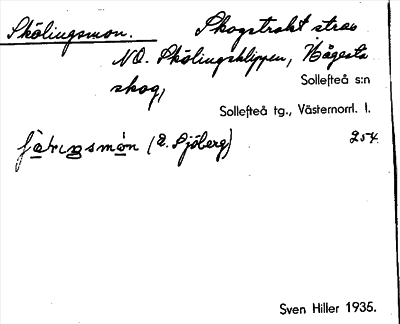 Skölingsmon. Skogstrakt strax
NO. Skölingsklippen, Hågesta
skog,
Sollefteå s:n
Sollefteå tg., Västernorrl. l.
(E. Sjöberg) 254.
Sven Hiller 1935.